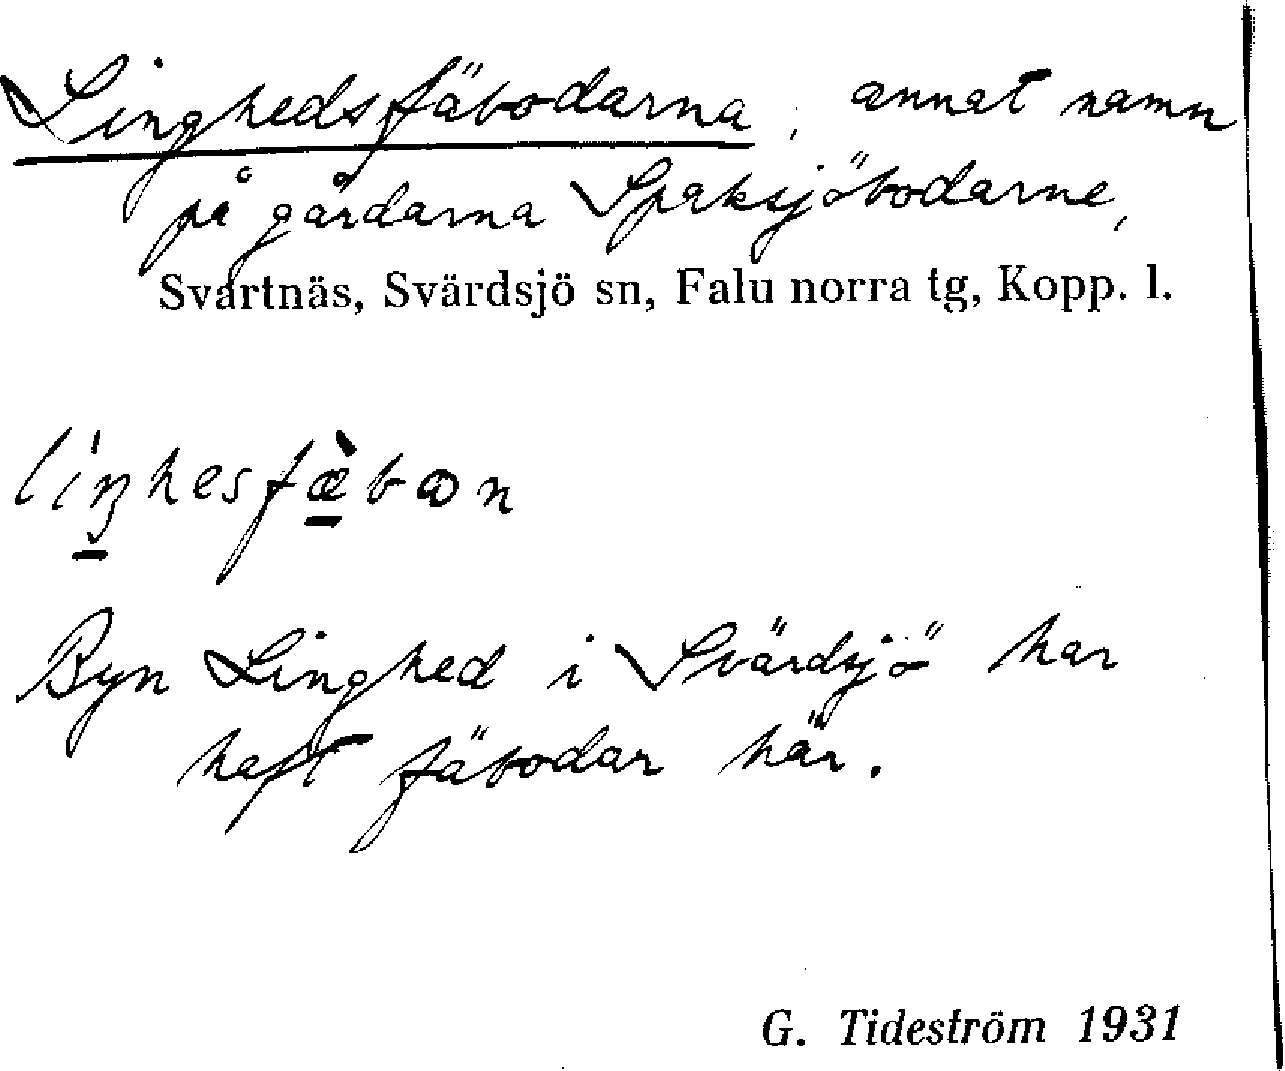 Linghedsfäbodarna, annat namn
på gårdarna Spaksjöbodarne,
Svartnäs, Svärdsjö sn, Falu norra tg, Kopp. l.
Byn Linghed i Svärdsjö har
haft fäbodar här.
G. Tideström 1931